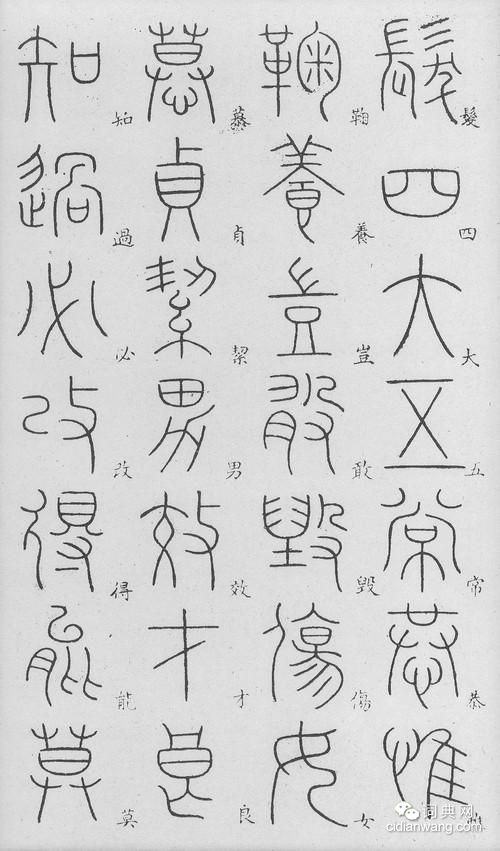 髮四大五常恭惟
鞠養豈敢毀傷女
慕貞絜男效才良
知過必改得能莫
词典网
cidianwang.com